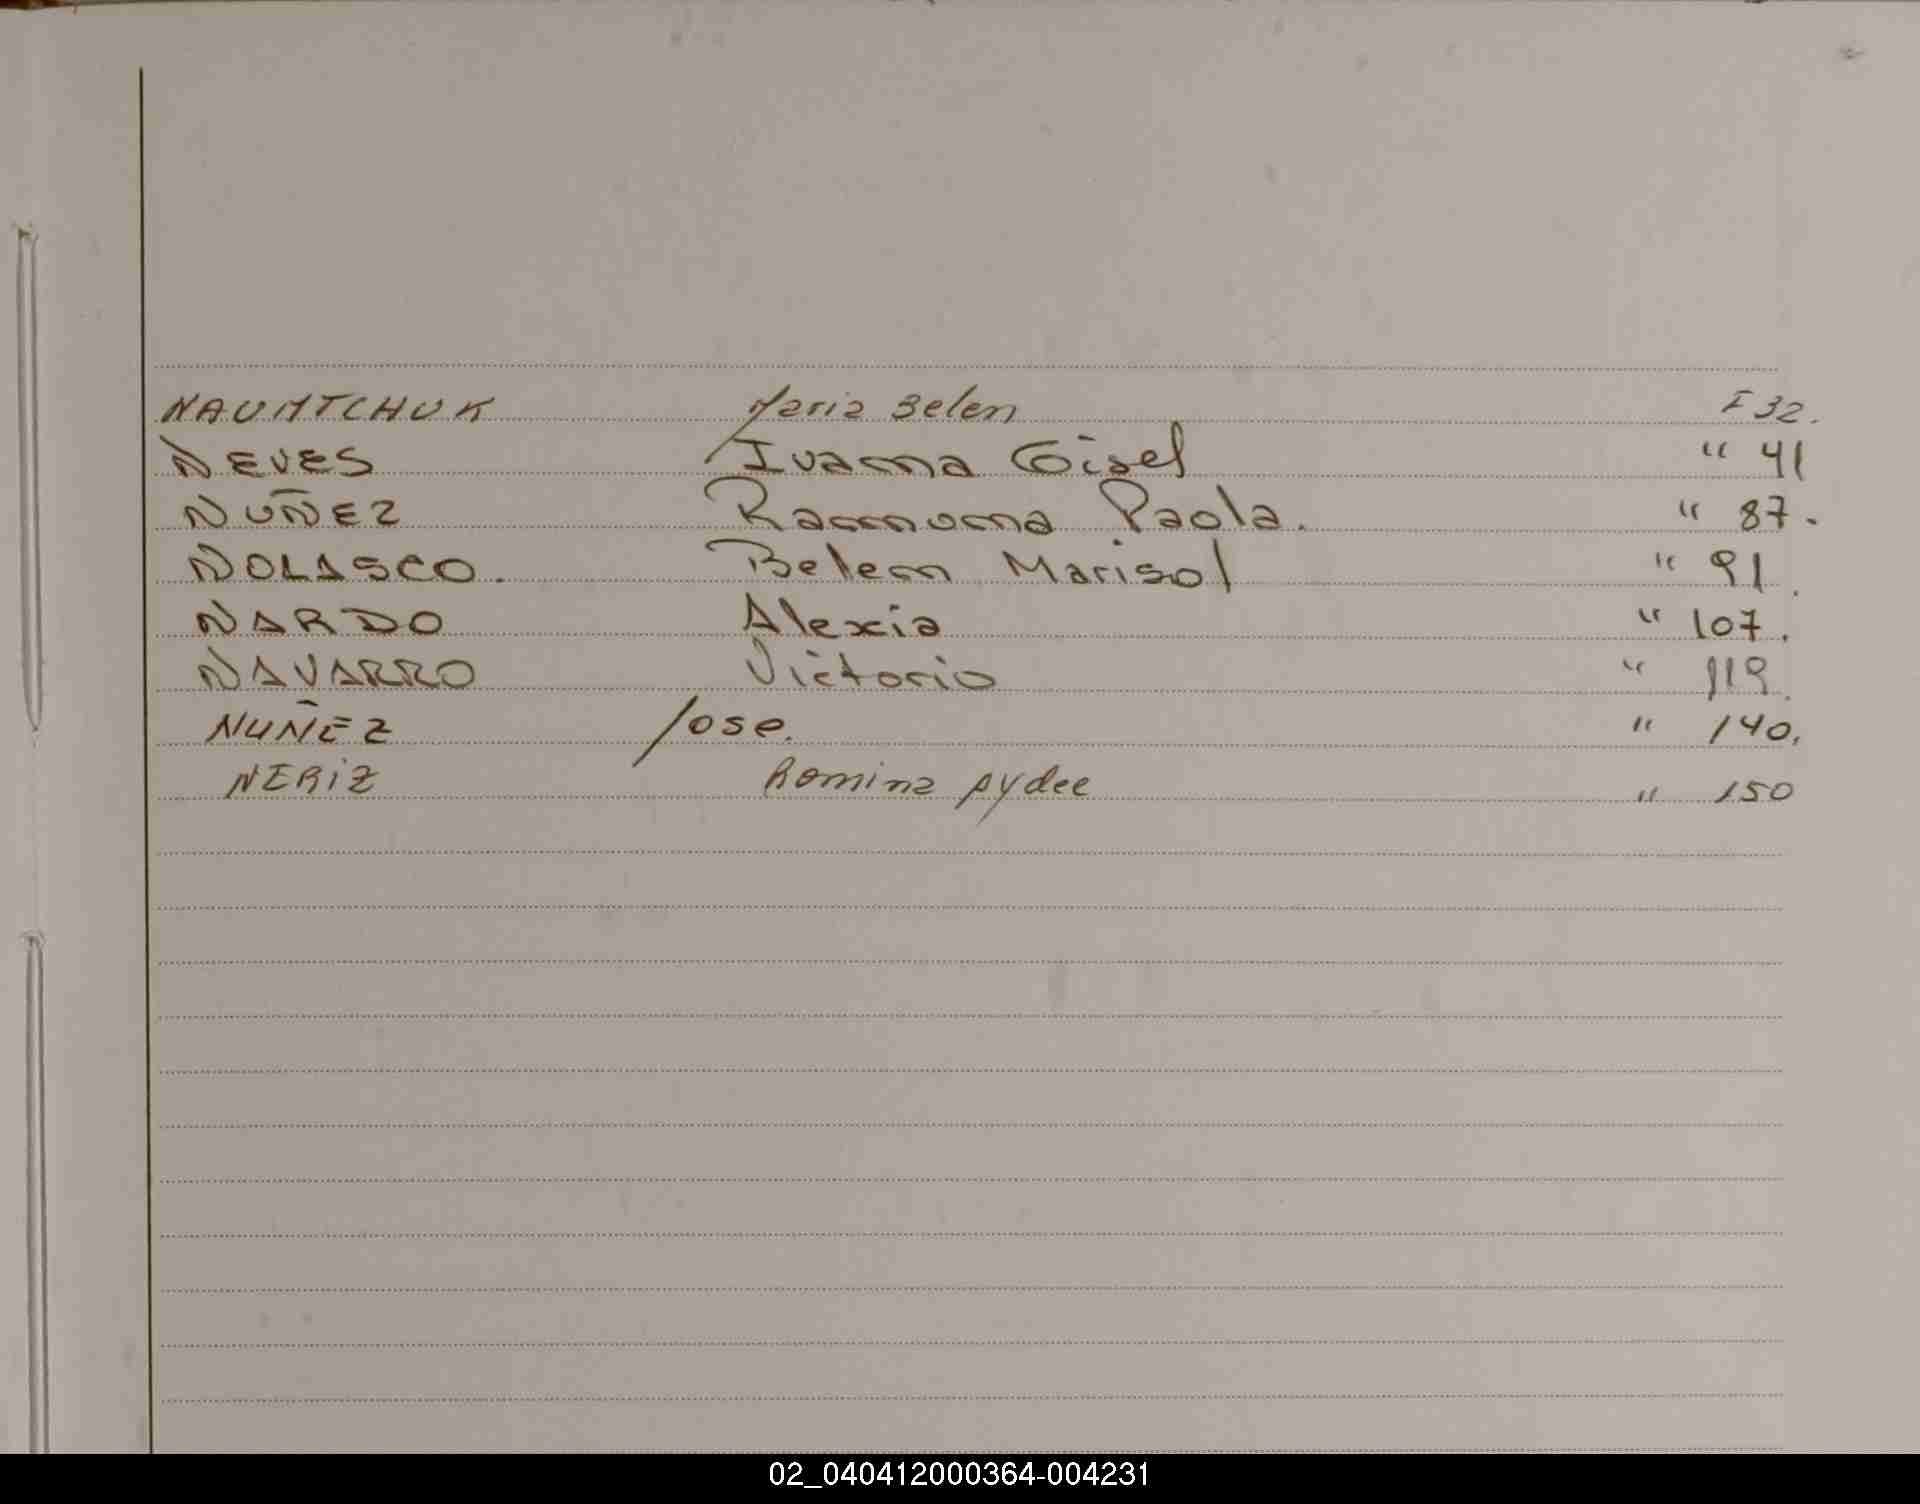 NAUMTCHUK Maria Belen F 32.
NEVES Ivanna Gisel " 41
NUÑEZ Ramona Paola. " 87.
NOLASCO. Belen Marisol " 91.
NARDO Alexia " 107.
NAVARRO Victorio " 119.
NUÑEZ Jose. " 140.
NERIZ Romina Aydee " 150
02_040412000364-004231